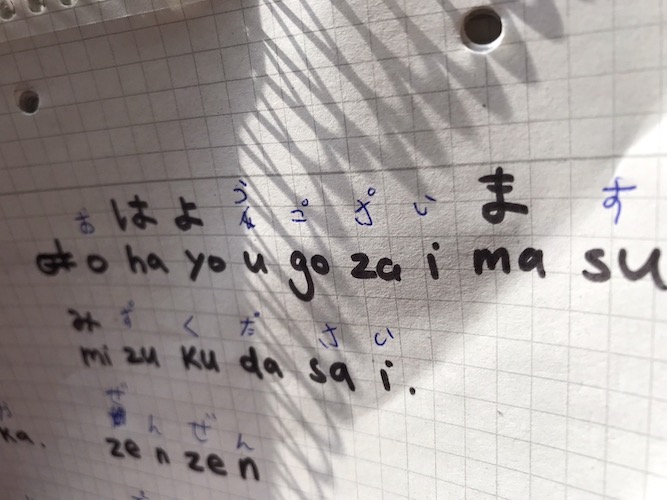 おはようご゚さ゚います
o ha yo u go za i ma su
みずください
mi zu ku da sa i.
ka. ぜんぜん
zen zen